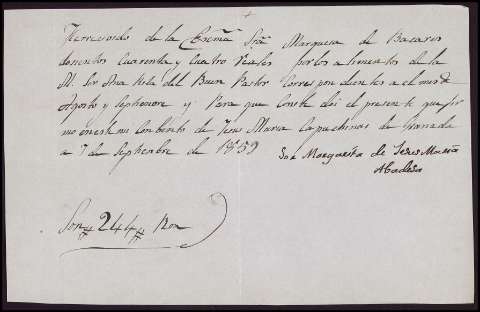 He recivido de la Excmã Srã Marquesa de
dosientos Cuarenta y Cuatro reales por los alimentos de la
M. Sor Ana Rosa del Buen Pastor Correspondientes a el mes de
Agosto y Septienbre y Para que Conste doi el presente que firmo en este mi Conbento de Jesus Maria Capuchinas de Granada
a 7 de Septienbre de 1859
Sor Margarita de Jesus Maria
Abadesa
Son # 244 # Ron